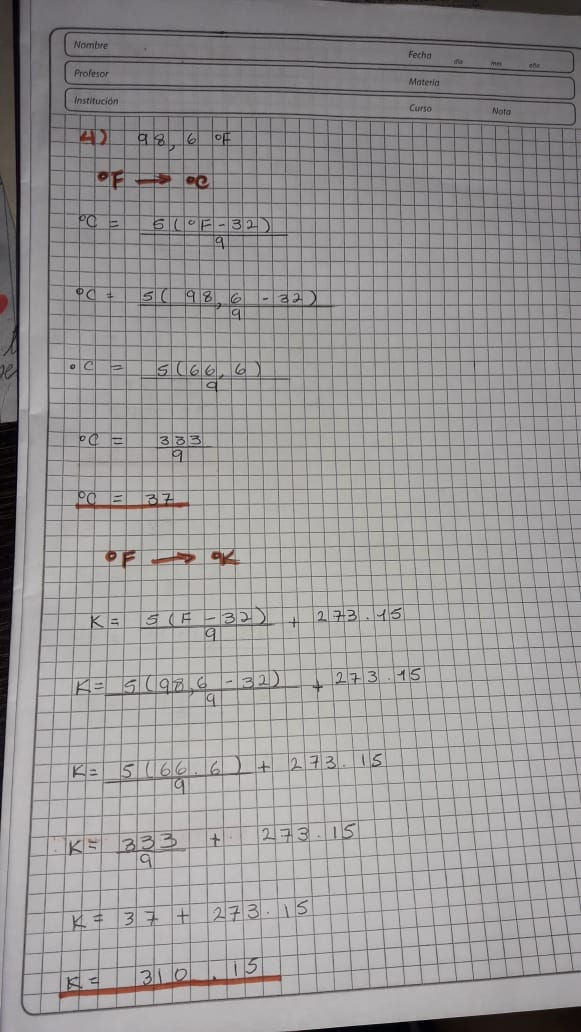 Nombre
Fecha día mes año
Profesor
Materia
Institución
Curso Nota
4) 98,6 °F
°F → °C
°C = 5(°F-32)
9
°C = 5(98,6 - 32)
9
°C = 5(66,6)
9
°C = 333
9
°C = 37
°F → °K
K = 5(F-32) + 273.15
9
K = 5(98,6 - 32) + 273.15
9
K = 5(66.6) + 273.15
9
K = 333 + 273.15
9
K = 37 + 273.15
K = 310.15